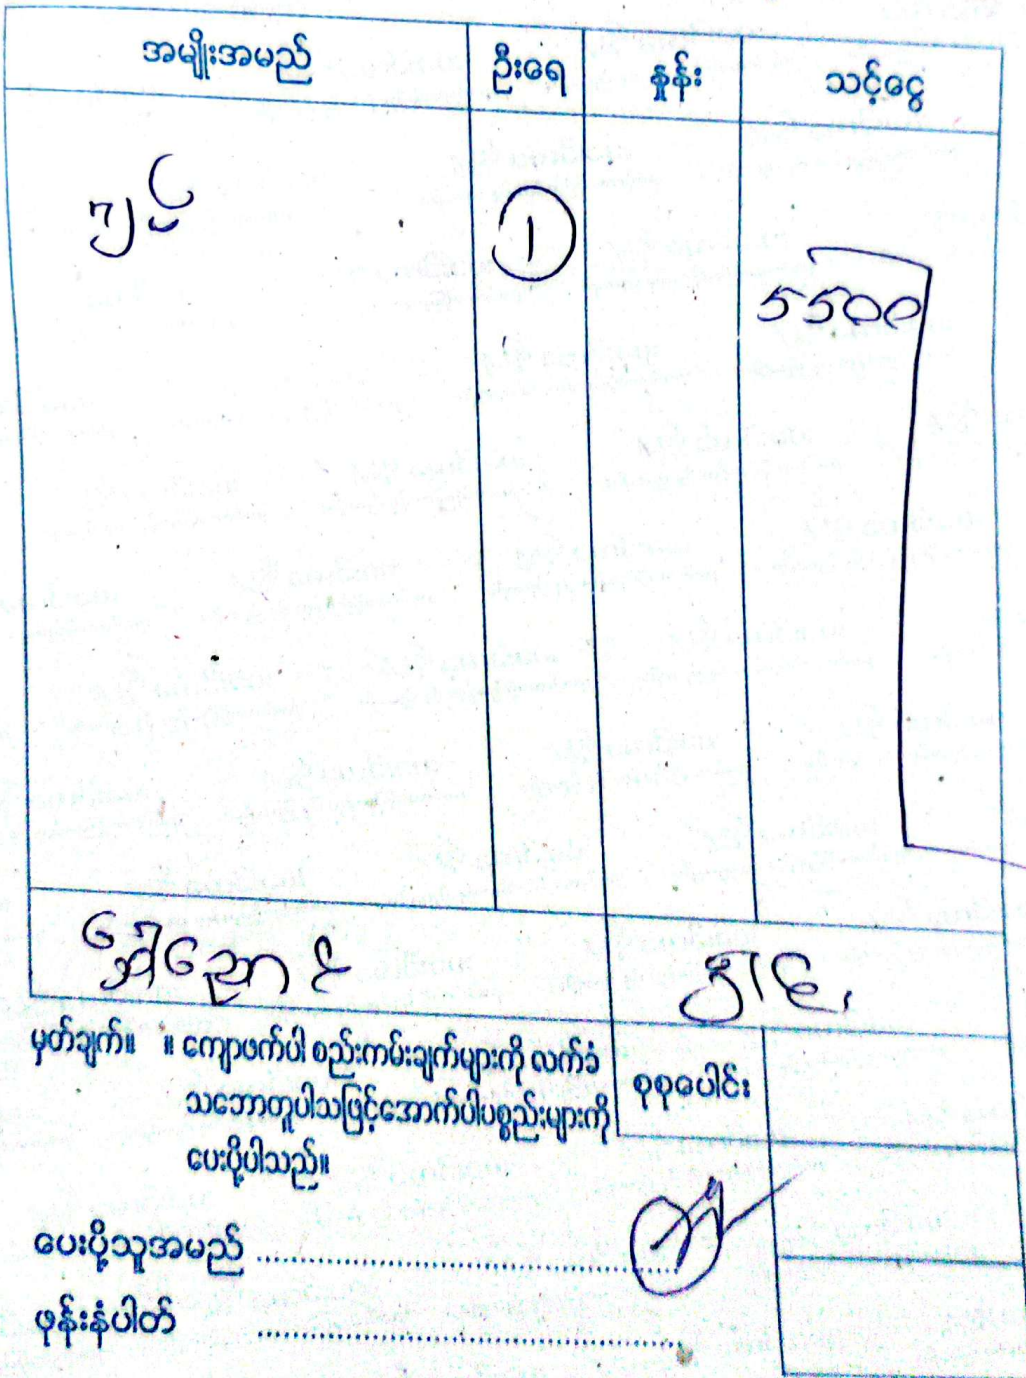 အမျိုးအမည် ဦးရေ နှုန်း သင့်ငွေ
1 5500
မှတ်ချက်။ ။ ကျောဖက်ပါ စည်းကမ်းချက်များကို လက်ခံ
သဘောတူပါသဖြင့်အောက်ပါပစ္စည်းများကို
ပေးပို့ပါသည်။
စုစုပေါင်း
ပေးပို့သူအမည်
ဖုန်းနံပါတ်